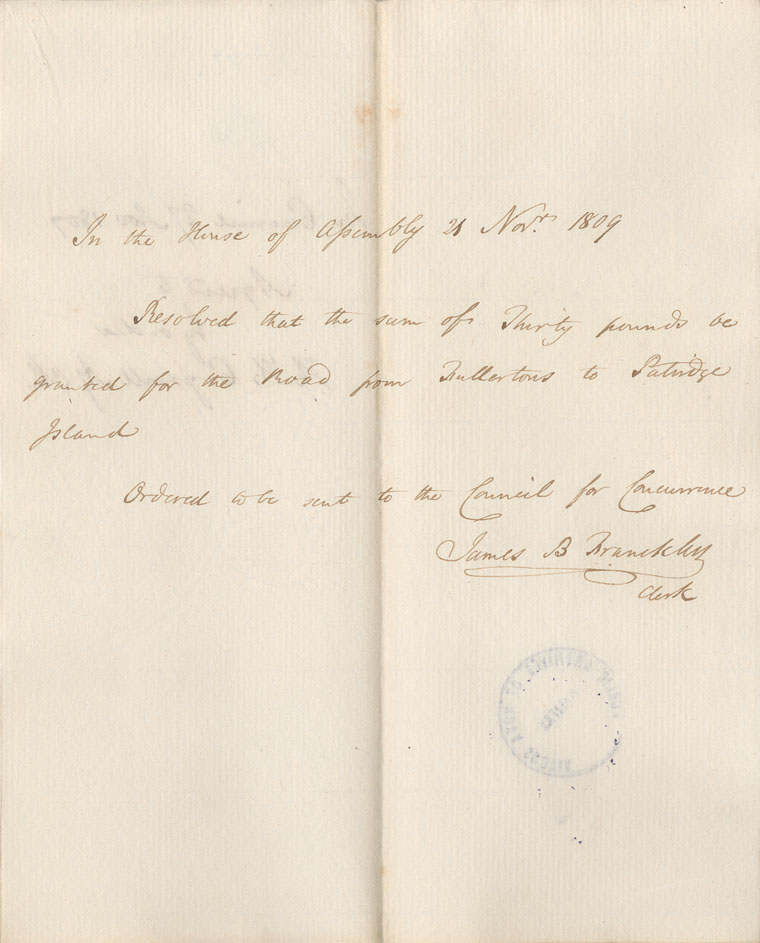 In the House of Assembly 21 Novr. 1809
Resolved that the sum of Thirty pounds be
granted for the Road from Fullertons to Patridge
Island
Ordered to be sent to the Council for Concurrence
James B Francklin
Clerk
PUBLIC ARCHIVES OF NOVA SCOTIA